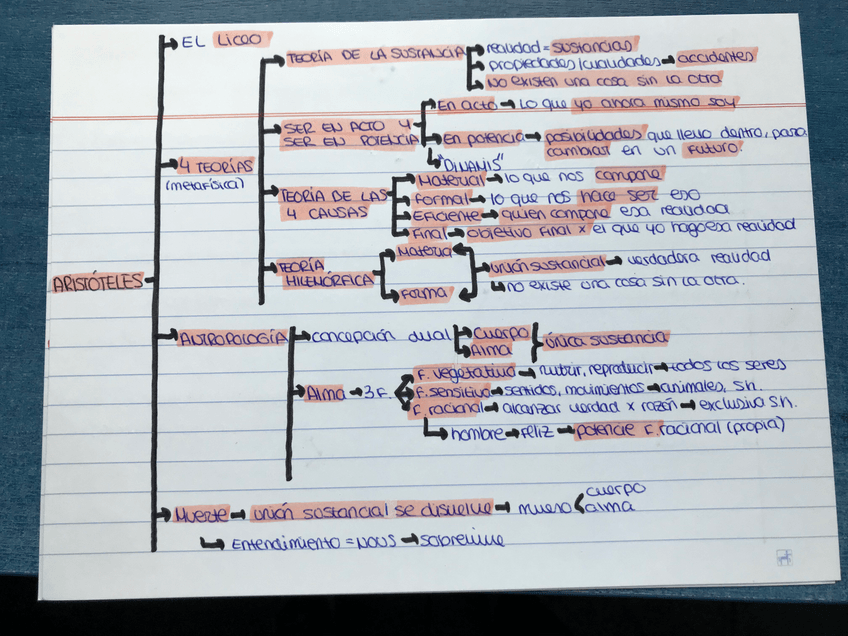 EL LICEO
TEORÍA DE LA SUSTANCIA
realidad = sustancias
propiedades/cualidades → accidentes
No existen una cosa sin la otra
4 TEORÍAS
(metafísica)
SER EN ACTO Y
SER EN POTENCIA
En acto → lo que yo ahora mismo soy
En potencia → posibilidades que llevo dentro, para
cambiar en un futuro.
"DINAMIS"
TEORÍA DE LAS
4 CAUSAS
Material → lo que nos compone
Formal → lo que nos hace ser eso
Eficiente → quien compone esa realidad
Final → objetivo final x el que yo hago esa realidad
ARISTÓTELES
TEORÍA
HILEMÓRFICA
Materia
Forma
unión sustancial → verdadera realidad
no existe una cosa sin la otra.
ANTROPOLOGÍA
concepción dual
Cuerpo
Alma
única sustancia
Alma → 3 F.
F. vegetativa → nutrir, reproducir → todos los seres
F. sensitiva → sentidos, movimientos → animales, s.h.
F. racional → alcanzar verdad x razón → exclusiva s.h.
hombre → feliz → potencie F. racional (propia)
Muerte → unión sustancial se disuelve → muero
cuerpo
alma
Entendimiento = NOUS → sobrevive